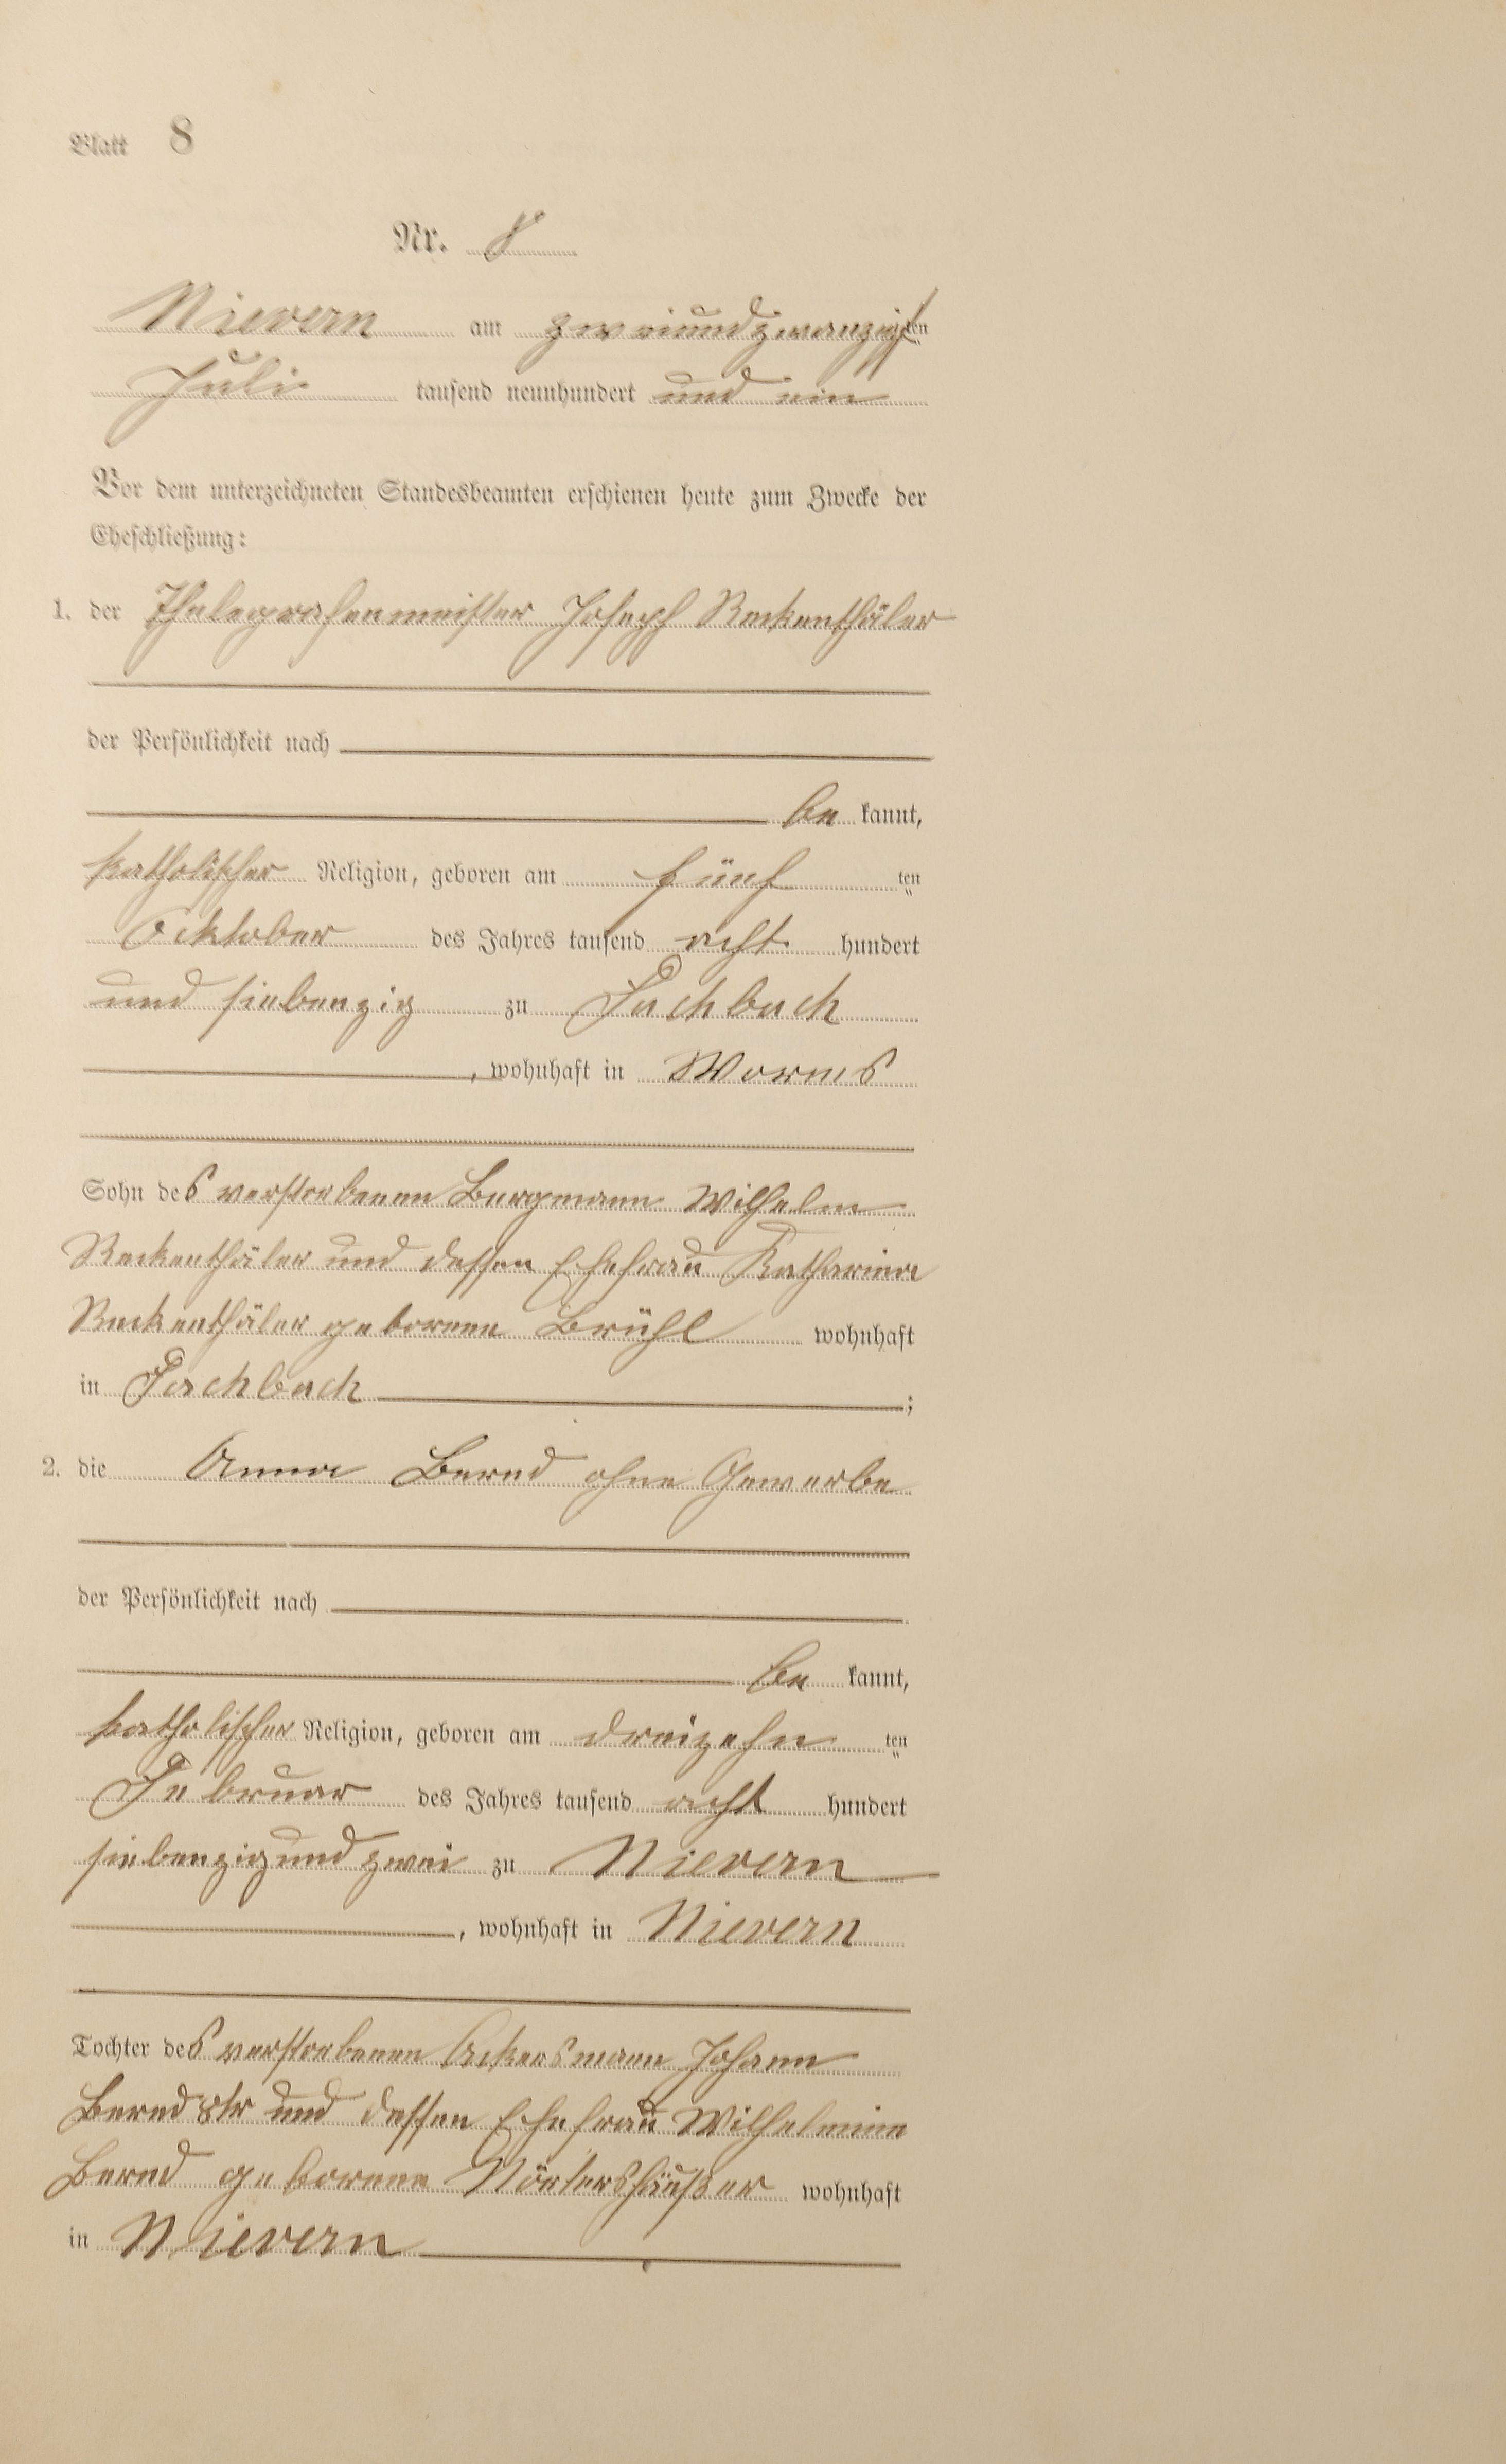 Blatt 8
Nr. 8
Nievern am zweiundzwanzigsten
Juli tausend neunhundert und ein
Vor dem unterzeichneten Standesbeamten erschienen heute zum Zwecke der
Eheschließung:
1. der Thelegrafenmeister Joseph Reckenthäler
der Persönlichkeit nach
be kannt,
katholischer Religion, geboren am fünf ten
Ocktober des Jahres tausend acht hundert
und siebenzig zu Fachbach
, wohnhaft in Worms
Sohn des verstorbenen Bergmann Wilhelm
Reckenthäler und dessen Ehefrau Katharina
Reckenthäler geborene Brühl wohnhaft
in Fachbach ;
2. die Anna Bernd ohne Gewerbe
der Persönlichkeit nach
be kannt,
katholischer Religion, geboren am dreizehn ten
Februar des Jahres tausend acht hundert
siebenzig und zwei zu Nievern
, wohnhaft in Nievern
Tochter des verstorbenen Ackersmann Johann
Bernd 8tr und dessen Ehefrau Wilhelmine
Bernd geborene Mörtershäußer wohnhaft
in Nievern